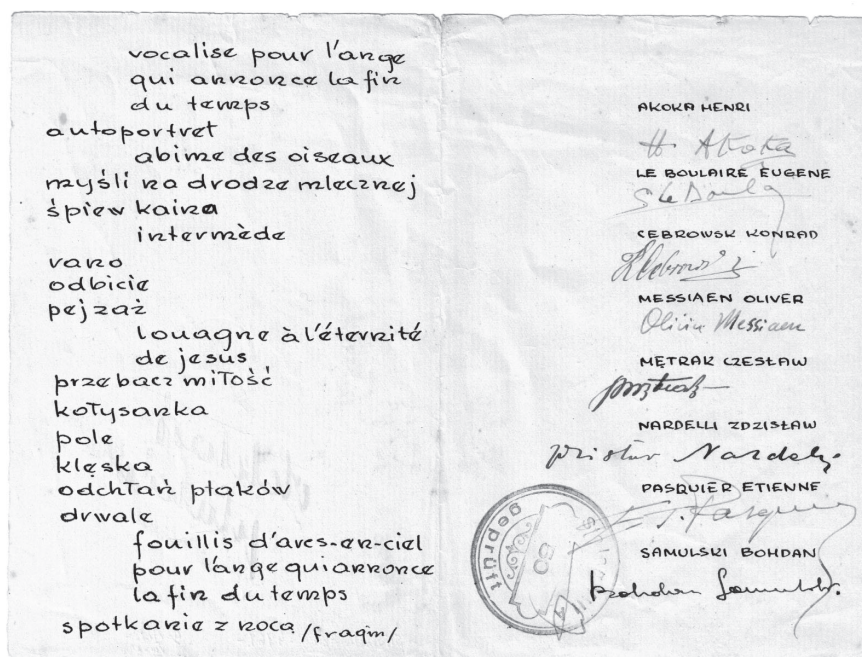 vocalise pour l'ange
qui annonce la fin
du temps
autoportret
abime des oiseaux
myśli na drodze mlecznej
śpiew kaina
intermède
rano
odbicie
pejzaż
louagne à l'éternité
de jesus
przebacz miłość
kołysanka
pole
klęska
odchłań ptaków
drwale
fouillis d'arcs-en-ciel
pour l'ange qui annonce
la fin du temps
spotkanie z nocą /fragm/
AKOKA HENRI
H Akoka
LE BOULAIRE EUGENE
CEBROWSK KONRAD
MESSIAEN OLIVER
Olivier Messiaen
MĘTRAK CZESŁAW
NARDELLI ZDZISŁAW
Nardelli
PASQUIER ETIENNE
Et. Pasquier
SAMULSKI BOHDAN
Bohdan Samulski
geprüft
60